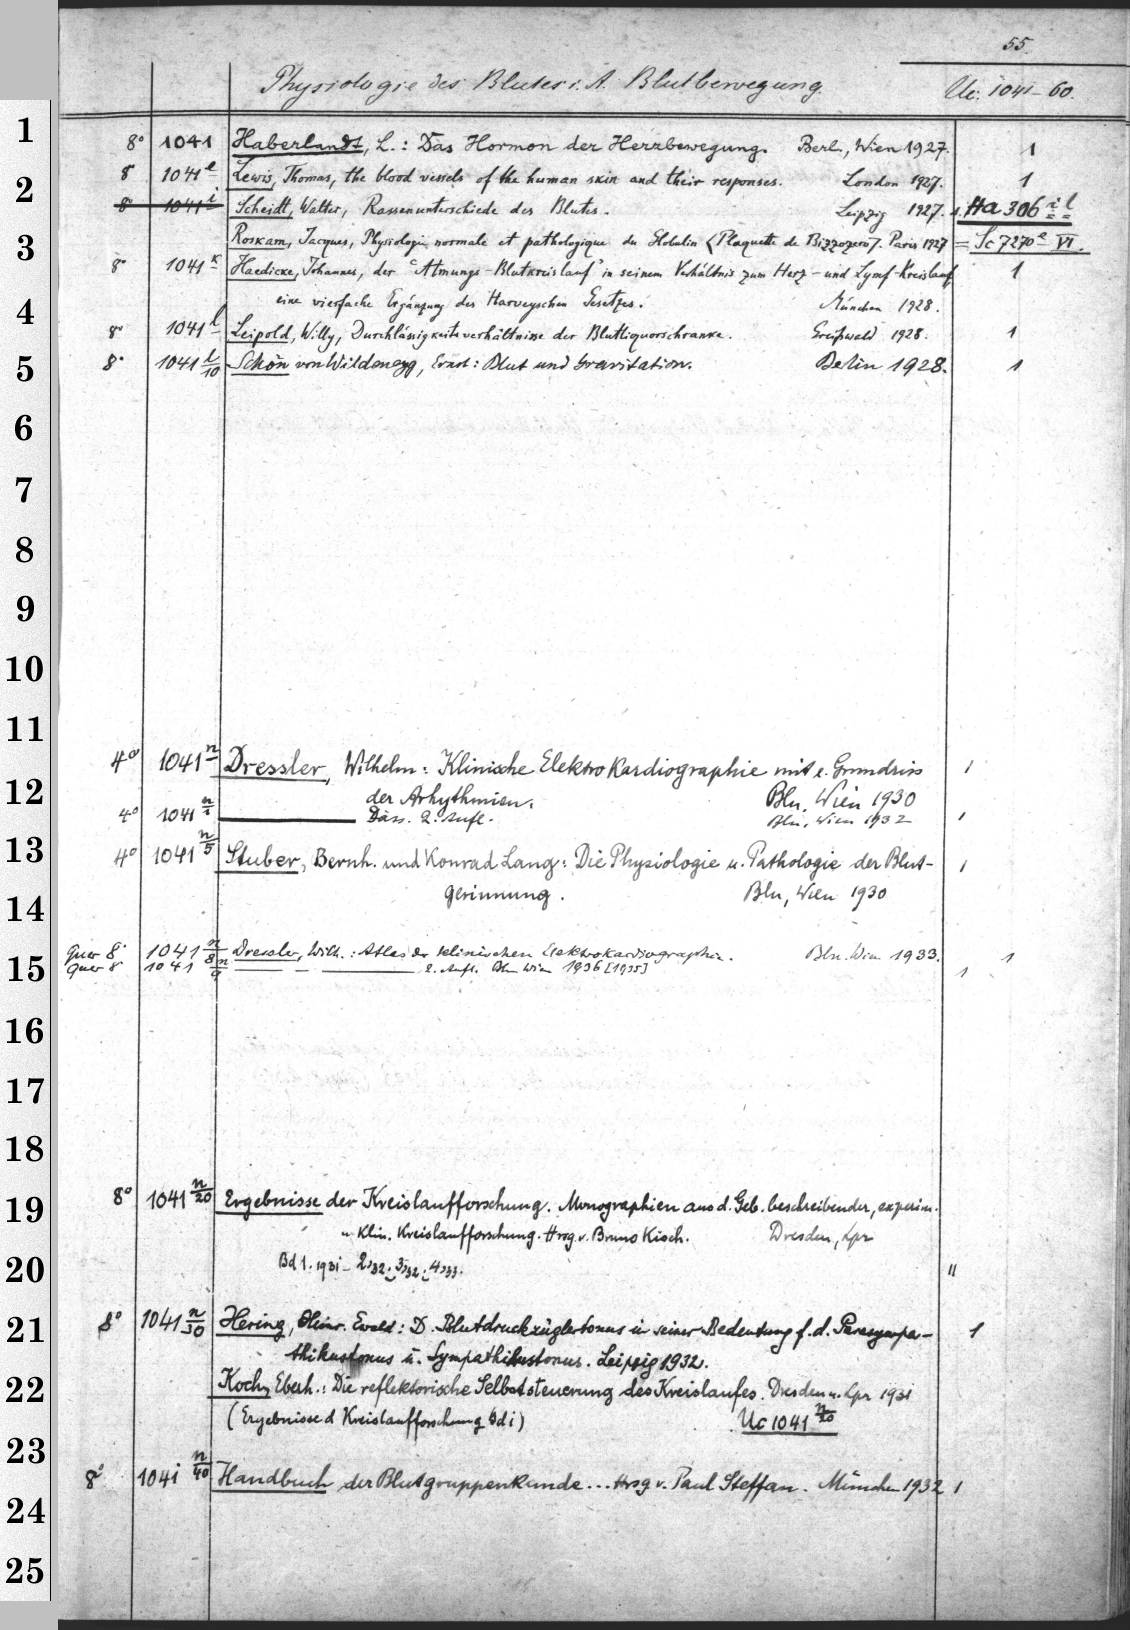 55.
Physiologie des Blutes i. A. Blutbewegung. Uc. 1041-60.
1
8° 1041 Haberlandt, L.: Das Hormon der Herzbewegung. Berl., Wien 1927. 1
8° 1041 Lewis, Thomas, the blood vessels of the human skin and their responses. London 1927. 1
2
8° 1041 i Scheidt, Walter, Rassenunterschiede des Blutes. Leipzig 1927. Ha 306 i l
Roskam, Jacques, Physiologie normale et pathologique du Globulin (Plaquette de Bizzozero). Paris 1927 = Sc 7270 e VI.
3
8° 1041 k Haedicke, Johannes, der "Atmungs-Blutkreislauf" in seinem Verhältnis zum Herz- und Lymf-Kreislauf 1
eine vierfache Ergänzung des Harveyschen Gesetzes. München 1928.
4
8° 1041 l Leipold, Willy, Durchlässigkeitsverhältnisse der Blutliquorschranke. Greifswald 1928. 1
5
8° 1041 l/10 Schön von Wildenegg, Ernst: Blut und Gravitation. Berlin 1928. 1
6
7
8
9
10
11
4° 1041 n Dressler, Wilhelm: Klinische Elektrokardiographie mit e. Grundriss 1
12
der Arhythmien. Bln, Wien 1930
4° 1041 n/1 Dass. 2. Aufl. Bln, Wien 1932 1
13
4° 1041 n/5 Stuber, Bernh. und Konrad Lang: Die Physiologie u. Pathologie der Blut- 1
gerinnung. Bln, Wien 1930
14
quer 8° 1041 n/8 Dressler, Wilh.: Atlas der klinischen Elektrokardiographie. Bln. Wien 1933. 1
15
quer 8° 1041 n/9 — — 2. Aufl. Bln Wien 1936 [1935] 1
16
17
18
8° 1041 n/20 Ergebnisse der Kreislaufforschung. Monographien aus d. Geb. beschreibender, experim.
19
u. klin. Kreislaufforschung. Hrsg. v. Bruno Kisch. Dresden, Lpz
20
Bd 1. 1931 - 2,32; 3,32; 4,33. "
21
8° 1041 n/30 Hering, Heinr. Ewald: D. Blutdruckzüglertonus in seiner Bedeutung f. d. Parasympa- 1
thikustonus u. Sympathikustonus. Leipzig 1932.
22
Koch, Eberh.: Die reflektorische Selbststeuerung des Kreislaufes. Dresden u. Lpz 1931
(Ergebnisse d Kreislaufforschung Bd 1) Uc 1041 n/20
23
8° 1041 n/40 Handbuch der Blutgruppenkunde... Hrsg v. Paul Steffan. München 1932 1
24
25